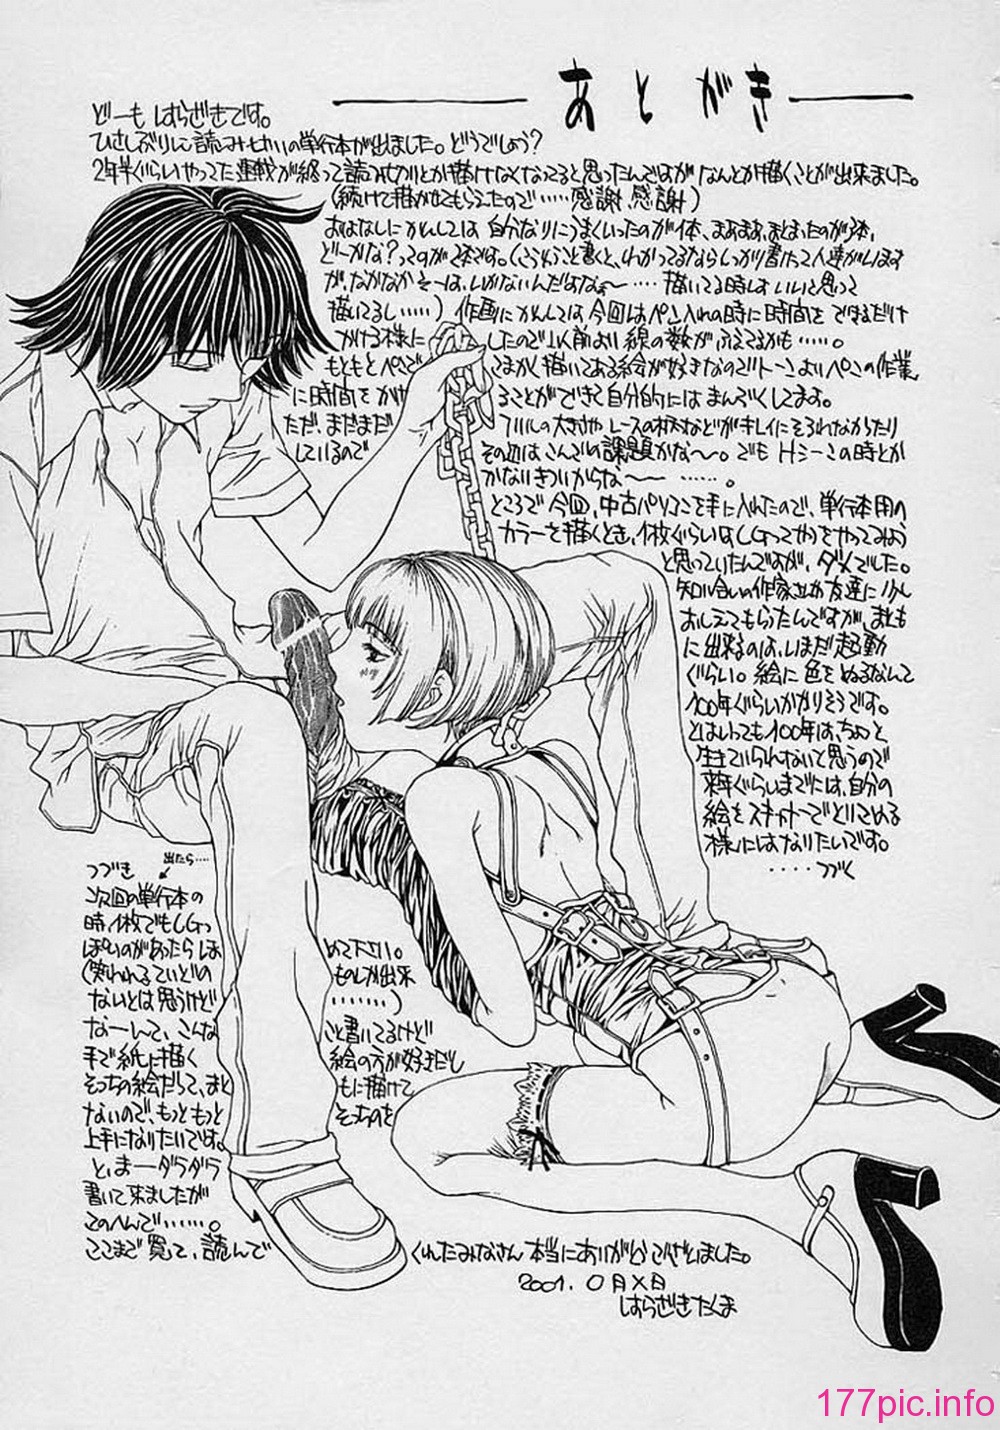 あとがき
どーも はらざきです。
ひさしぶりに読みせいの単行本が出ました。どうでしょう?
2年半ぐらいやってた連載が終って読み切りとか描けなくなってると思ったんですがなんとか描くことが出来ました。
(続けて描かせてもらえたので……感謝、感謝)
おはなしにかんしては 自分なりにうまくいったのが1本、まあまあ、まとまったのが3本、
どーかな?ってのが2本です。(こういうこと書くと、わかってるならしっかり書けって人達がいます
が、なかなかそーは、いかないんだよなぁ〜……描いてる時はいいと思って
描いてるし……) 作画にかんしては今回はペン入れの時に時間をできるだけ
かける様にしたので以前より線の数がふえてるかも……。
もともとペンでこまかく描いてある絵が好きなのでトーンよりペンの作業
に時間をかけることができて自分的にはまんぞくしてます。
ただ、まだまだフリルの大きさやレースの模様などがキレイにそろわなかったり
しているのでその辺はこんごの課題かな〜。でもHシーンの時とか
かなりきついからな〜……。
ところで今回、中古パソコンを手に入れたので、単行本用の
カラーを描くとき、1枚ぐらいはCGってやつをやってみよう
と思っていたんですが、ダメでした。
知り合いの作家さんや友達に少し
おしえてもらったんですが、まともに
出来るのは、いまだ起動
ぐらい。絵に色をぬるなんて
100年ぐらいかかりそうです。
とはいっても100年は、ちょっと
生きていられないと思うので
来年ぐらいまでには、自分の
絵をスキャナーでとりこめる
様にはなりたいです。
‥‥つづく
つづき
出たら‥‥
次回の単行本の
時、1枚でもCGっ
ぽいのがあったらほめて下さい。
(笑われるていどのもしか出来
ないとは思うけど……)
なーんて、こんなこと書いてるけど
手で紙に描く絵の方が好きだし
そっちの絵だって、まともに描けて
ないので、もっともっとそっちのを
上手になりたいです。
と、まーダラダラ
書いて来ましたが
このへんで……。
ここまで買って、読んでくれたみなさん本当にありがとうございました。
2001. 0月X日
はらざきたくま
177pic.info